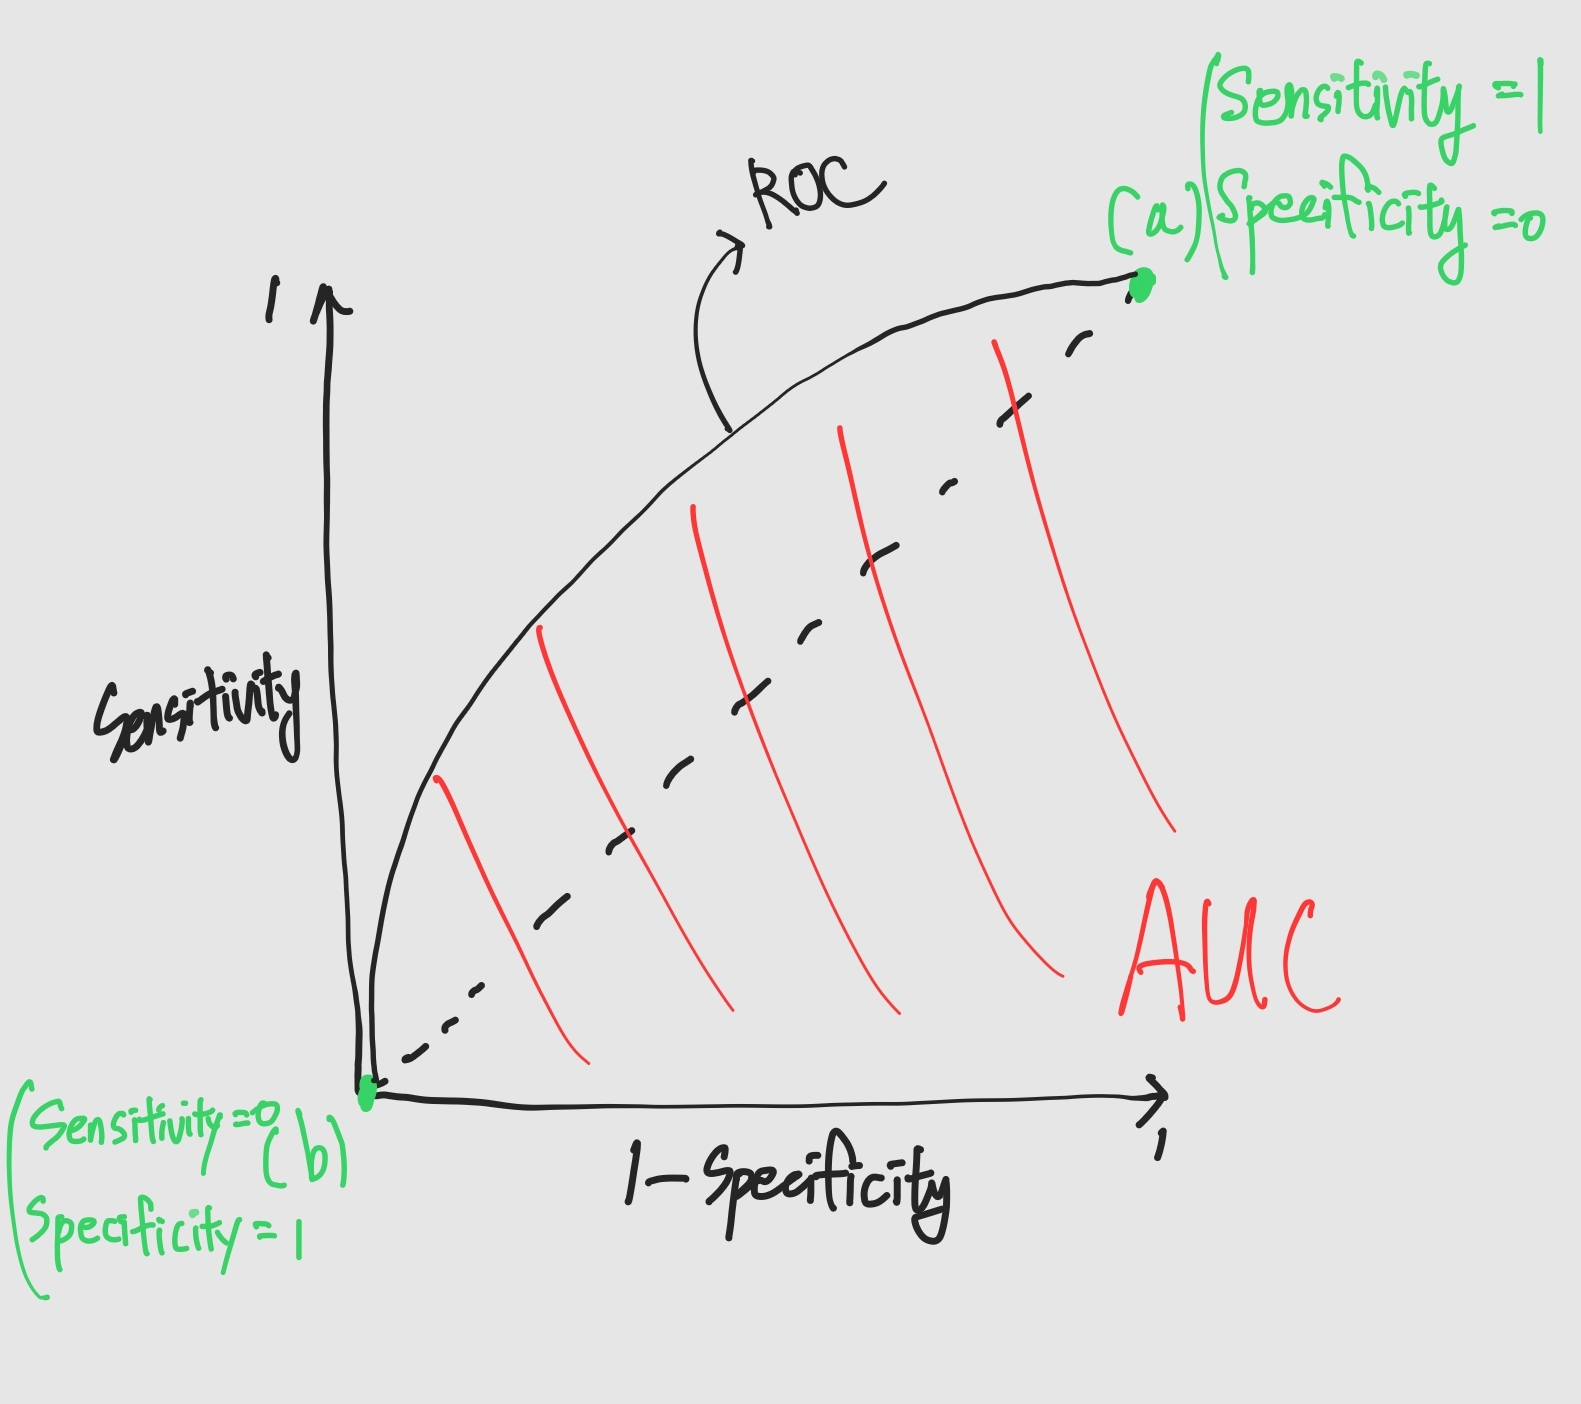 Sensitivity = 1
(a) Specificity = 0
ROC
1
Sensitivity
AUC
Sensitivity = 0
(b)
Specificity = 1
1
1 - Specificity